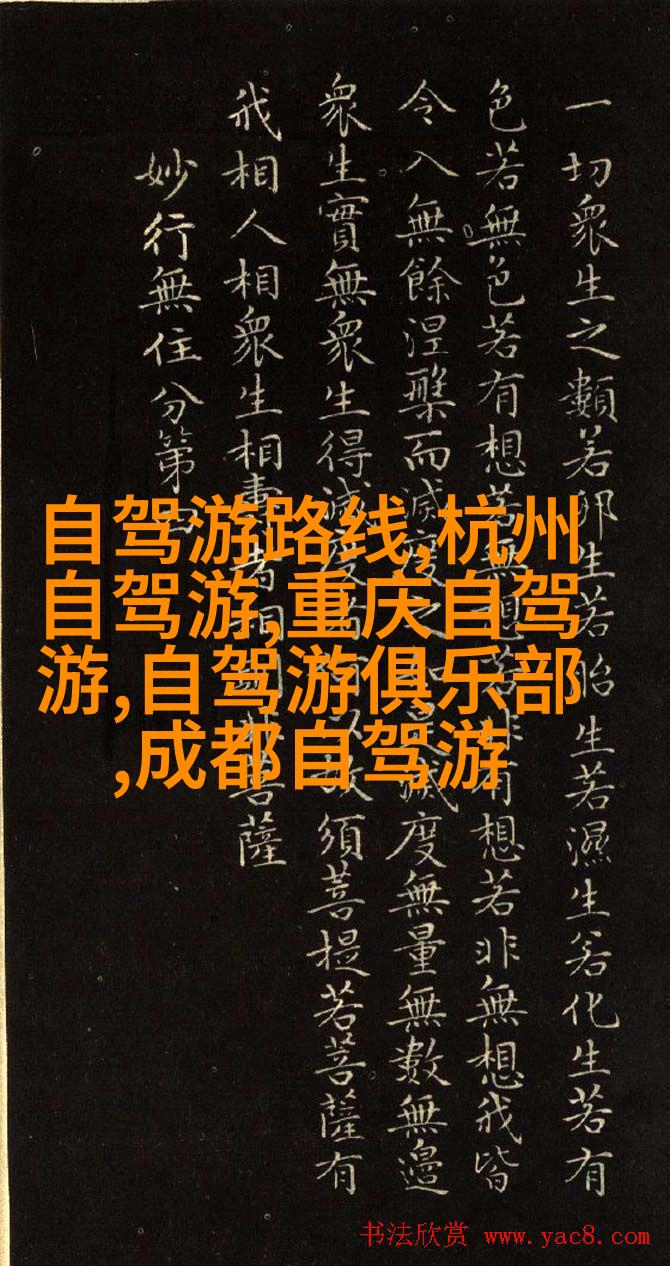 一切衆生之類若卵生若胎生若濕生若化生若有
色若無色若有想若無想若非有想若非無想我皆
令入無餘涅槃而滅度之如是滅度無量無數無邊
衆生實無衆生得滅度者何以故須菩提若菩薩有
我相人相衆生相壽者相菩薩
妙行無住分第四
自驾游路线,杭州
自驾游,重庆自驾
游,自驾游俱乐部
,成都自驾游
书法欣赏 www.yac8.com